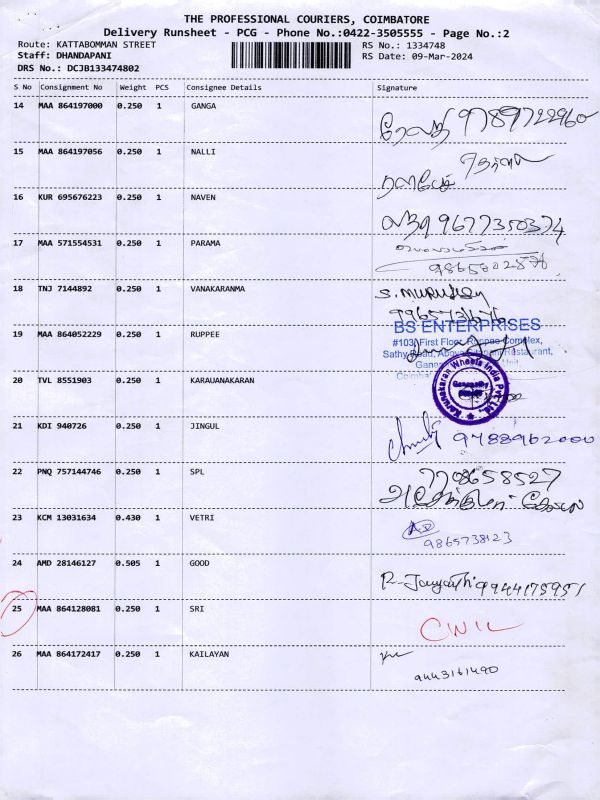 THE PROFESSIONAL COURIERS, COIMBATORE
Delivery Runsheet - PCG - Phone No.:0422-3505555 - Page No.:2
Route: KATTABOMMAN STREET RS No.: 1334748
Staff: DHANDAPANI RS Date: 09-Mar-2024
DRS No.: DCJB133474802
S No Consignment No Weight PCS Consignee Details Signature
14 MAA 864197000 0.250 1 GANGA
9789722960
15 MAA 864197056 0.250 1 NALLI
16 KUR 695676223 0.250 1 NAVEN
9677350374
17 MAA 571554531 0.250 1 PARAMA
18 TNJ 7144892 0.250 1 VANAKARANMA
19 MAA 864052229 0.250 1 RUPPEE
BS ENTERPRISES
#103, First Floor, Ruppee Complex,
20 TVL 8551903 0.250 1 KARAUANAKARAN
Karunakaran Wheels India Pvt Ltd.
21 KDI 940726 0.250 1 JINGUL
9788962000
22 PNQ 757144746 0.250 1 SPL
7708658527
23 KCM 13031634 0.430 1 VETRI
9865738123
24 AMD 28146127 0.505 1 GOOD
9944175951
25 MAA 864128081 0.250 1 SRI
26 MAA 864172417 0.250 1 KAILAYAN
9443161490